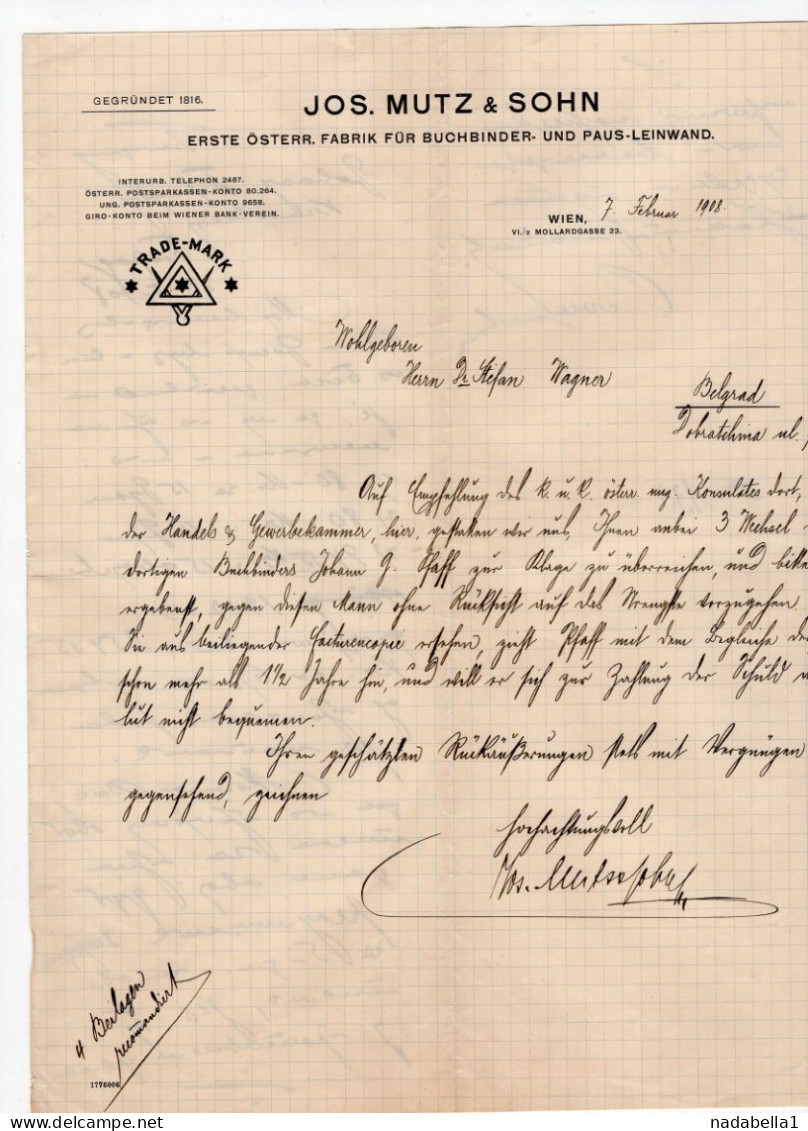 GEGRÜNDET 1816.
JOS. MUTZ & SOHN
ERSTE ÖSTERR. FABRIK FÜR BUCHBINDER- UND PAUS-LEINWAND.
INTERURB. TELEPHON 2487.
ÖSTERR. POSTSPARKASSEN-KONTO 80.264.
UNG. POSTSPARKASSEN-KONTO 9658.
GIRO-KONTO BEIM WIENER BANK-VEREIN.
WIEN, 7. Februar 1908.
VI./2 MOLLARDGASSE 23.
TRADE-MARK
Wohlgeboren
Herrn Dr. Stefan Wagner
Belgrad
Dobratchina ul.
Auf Empfehlung des k. u. k. österr. ung. Konsulates dort,
der Handels & Gewerbekammer, hier, gestatten wir uns, Ihnen anbei 3 Wechsel
dortigen Buchbinders Johann G. Pfaff zur Klage zu überreichen, und bitte
ergebenst, gegen diesen Mann ohne Rücksicht auf das Strengste vorzugehen.
Sie aus beiliegender Facturencopie ersehen, zieht Pfaff mit dem Begleiche de
schon mehr als 1½ Jahre hin, und will er sich zur Zahlung der Schuld
lut nicht bequemen.
Ihren geschätzten Rückäußerungen stets mit Vergnügen
gegensehend, zeichnen
hochachtungsvoll
Jos. Mutz & Sohn
4 Beilagen
recommandiert
1776006
nadabella1